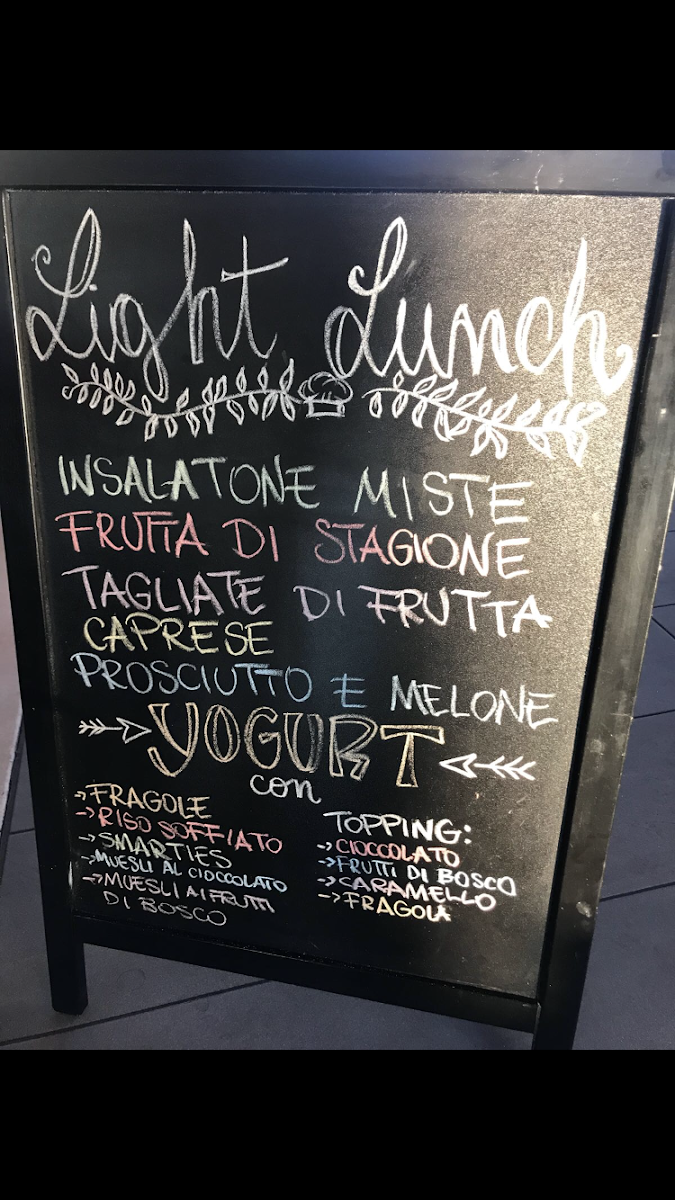 Light Lunch
INSALATONE MISTE
FRUTTA DI STAGIONE
TAGLIATE DI FRUTTA
CAPRESE
PROSCIUTTO E MELONE
YOGURT
con
→FRAGOLE
→RISO SOFFIATO
→SMARTIES
→MUESLI AL CIOCCOLATO
→MUESLI AI FRUTTI
DI BOSCO
TOPPING:
→CIOCCOLATO
→FRUTTI DI BOSCO
→CARAMELLO
→FRAGOLA